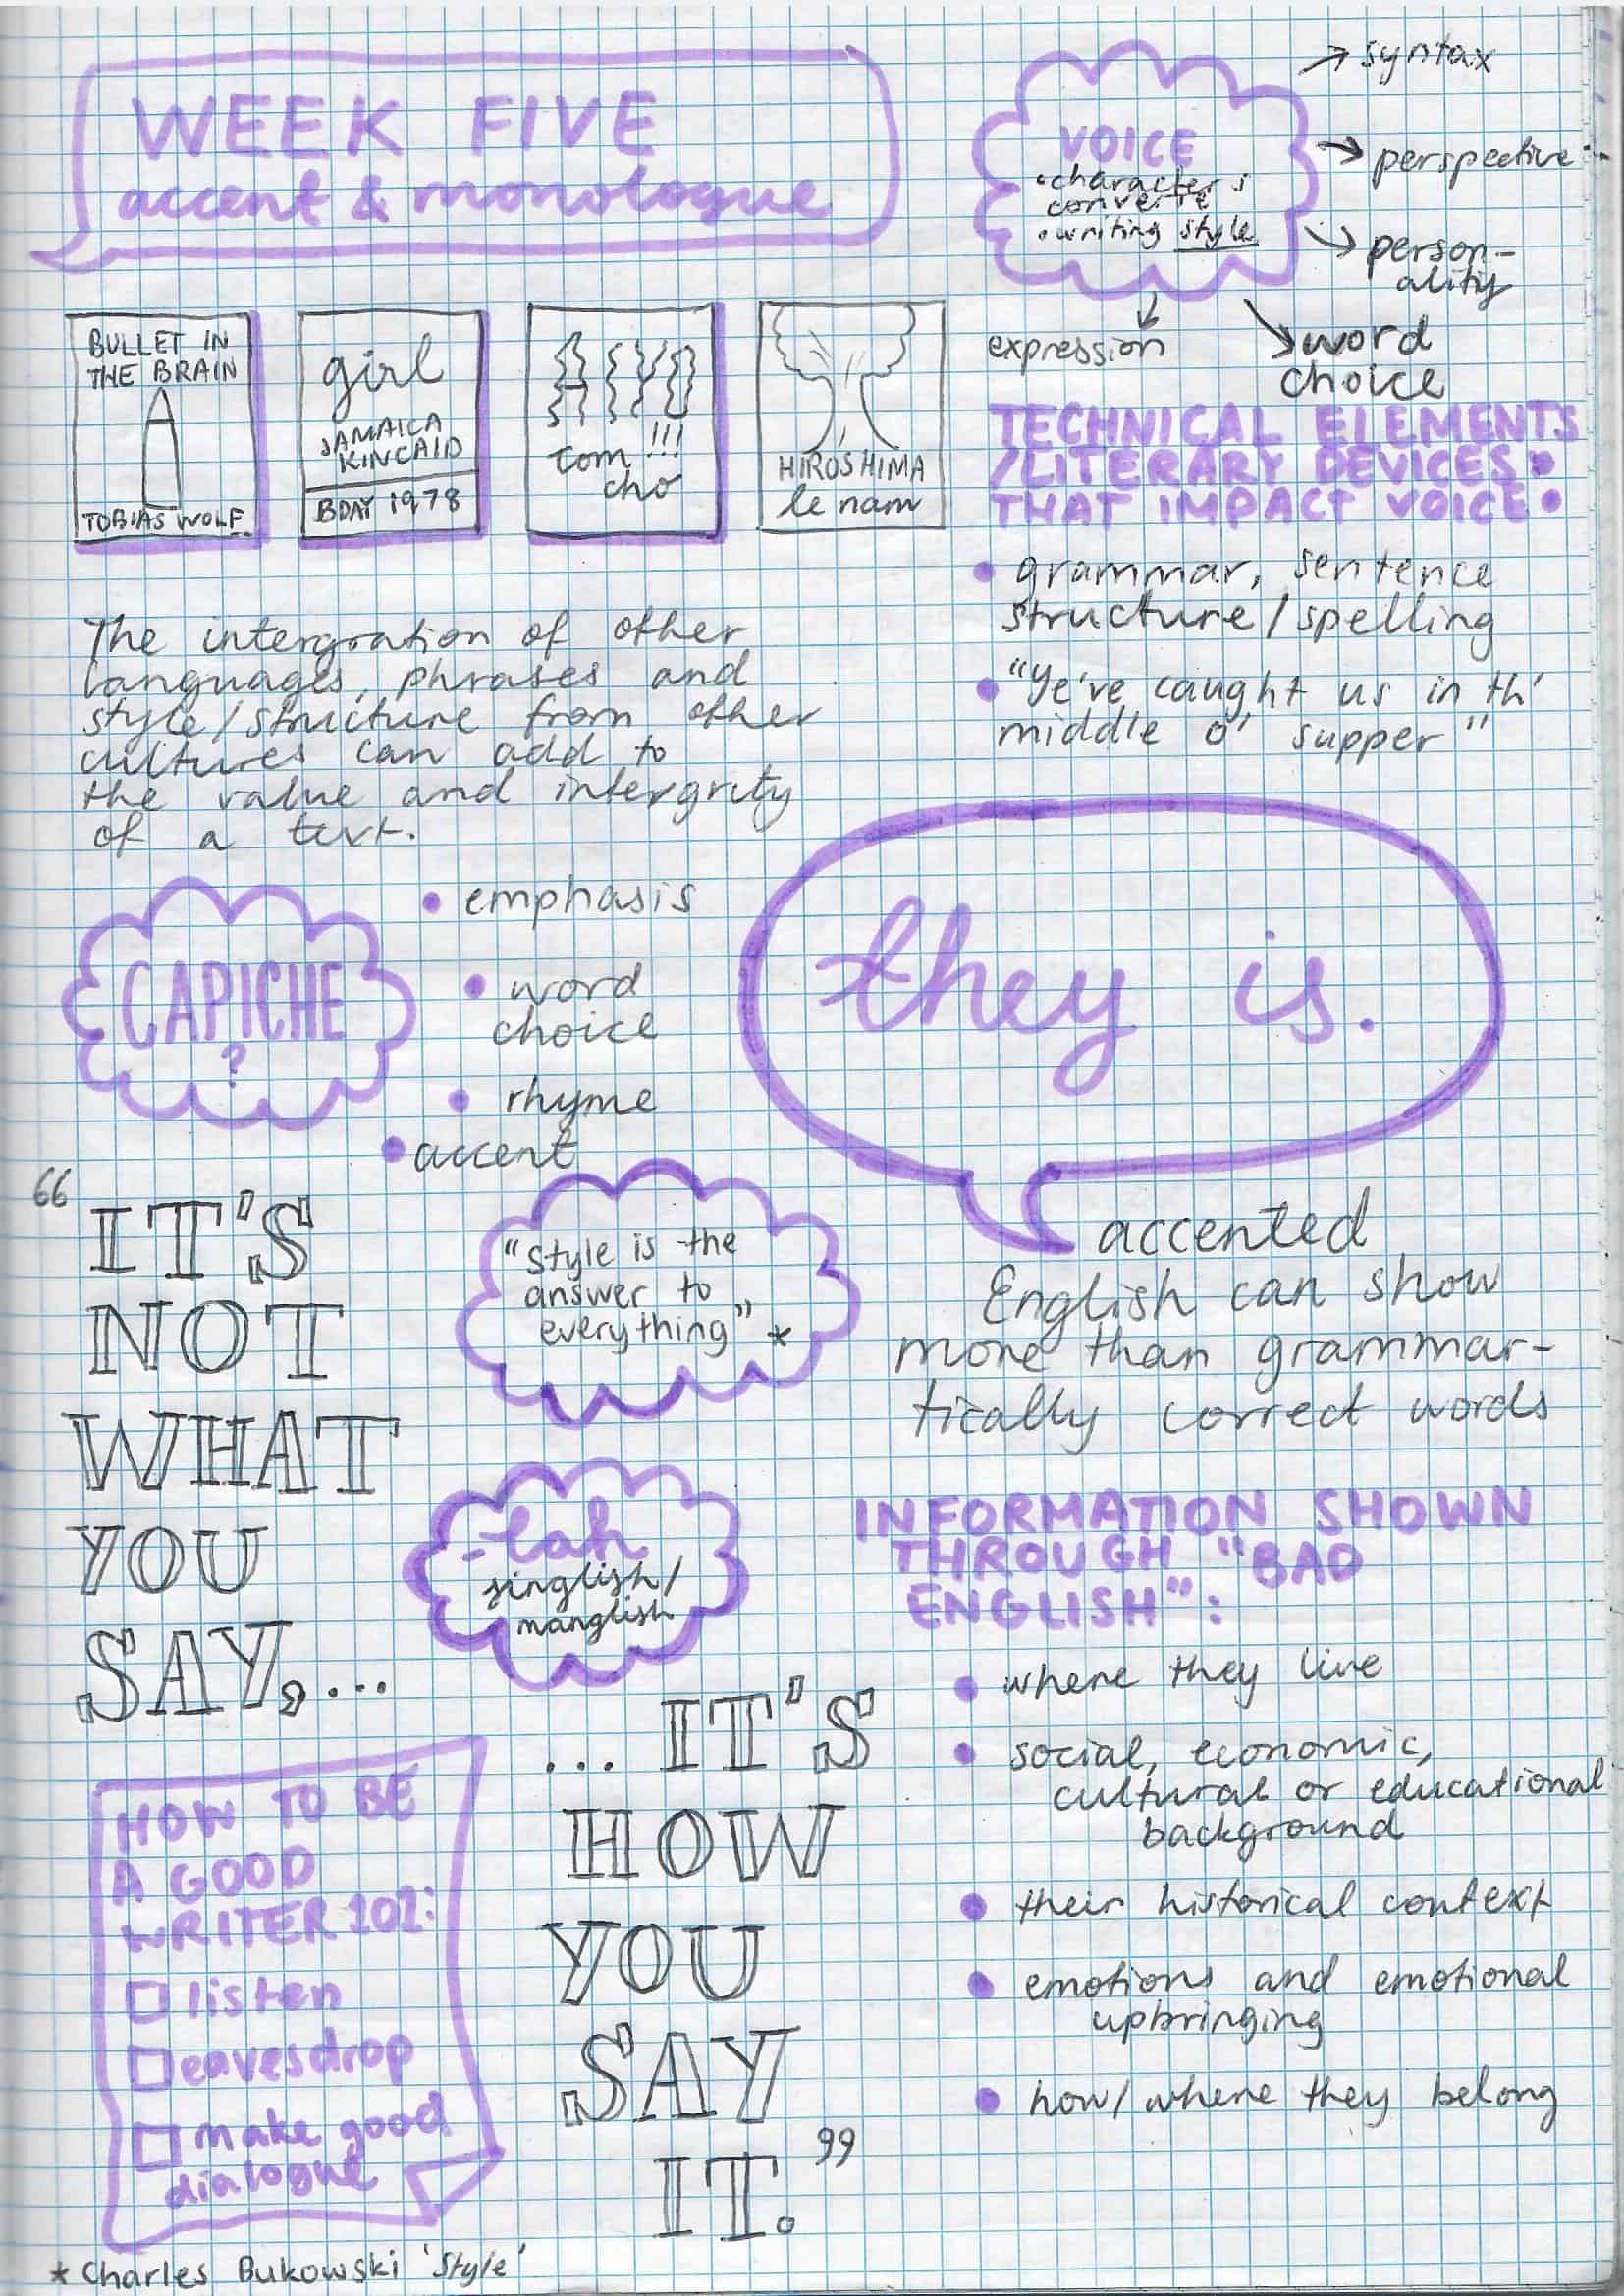 WEEK FIVE
accent & monologue
VOICE
•character's
converse
•writing style
→ syntax
→ perspective
→ person-
ality
→ word
choice
expression
BULLET IN
THE BRAIN
TOBIAS WOLF
girl
JAMAICA
KINCAID
BDAY 1978
!!!
tom
cho
HIROSHIMA
le nam
TECHNICAL ELEMENTS
/LITERARY DEVICES
THAT IMPACT VOICE:
• grammar, sentence
structure/spelling
• "Ye've caught us in th'
middle o' supper"
The intergration of other
languages, phrases and
style/structure from other
cultures can add to
the value and intergrity
of a text.
CAPICHE
?
• emphasis
• word
choice
• rhyme
• accent
they is.
accented
English can show
more than grammar-
tically correct words
"IT'S
NOT
WHAT
YOU
SAY,...
"Style is the
answer to
everything" *
-lah
singlish/
manglish
... IT'S
HOW
YOU
SAY
IT."
INFORMATION SHOWN
THROUGH "BAD
ENGLISH":
• where they live
• social, economic,
cultural or educational
background
• their historical context
• emotions and emotional
upbringing
• how/where they belong
HOW TO BE
A GOOD
WRITER 101:
□ listen
□ eavesdrop
□ make good
dialogue
* Charles Bukowski 'Style'